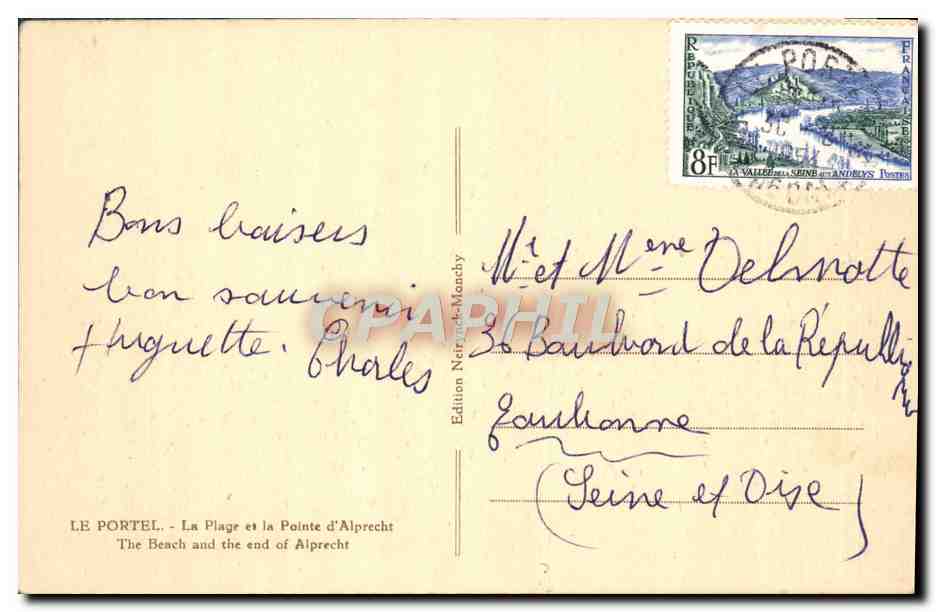 Bons baisers
bon souvenir
Huguette. Charles
LE PORTEL. - La Plage et la Pointe d'Alprecht
The Beach and the end of Alprecht
Edition Neirynck-Monchy
CPAPHIL
REPUBLIQUE FRANÇAISE
8F
LA VALLÉE DE LA SEINE AUX ANDELYS POSTES
Mr et Mme Delmotte
36 Boulevard de la République
Eaubonne
(Seine et Oise)